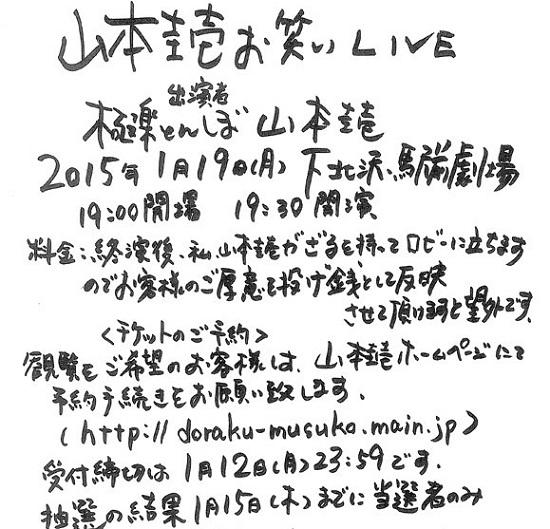 山本圭壱お笑いLIVE
出演者
極楽とんぼ 山本圭壱
2015年 1月19日(月) 下北沢、駅前劇場
19:00開場 19:30開演
料金:終演後、私、山本圭壱がざるを持ってロビーに立ちます
のでお客様のご厚意を投げ銭として反映
させて頂けますと望外です。
<チケットのご予約>
観覧をご希望のお客様は、山本圭壱ホームページにて
予約手続きをお願い致します。
(http://doraku-musuko.main.jp)
受付締切は 1月12日(月)23:59です.
抽選の結果1月15日(木)までに当選者のみ